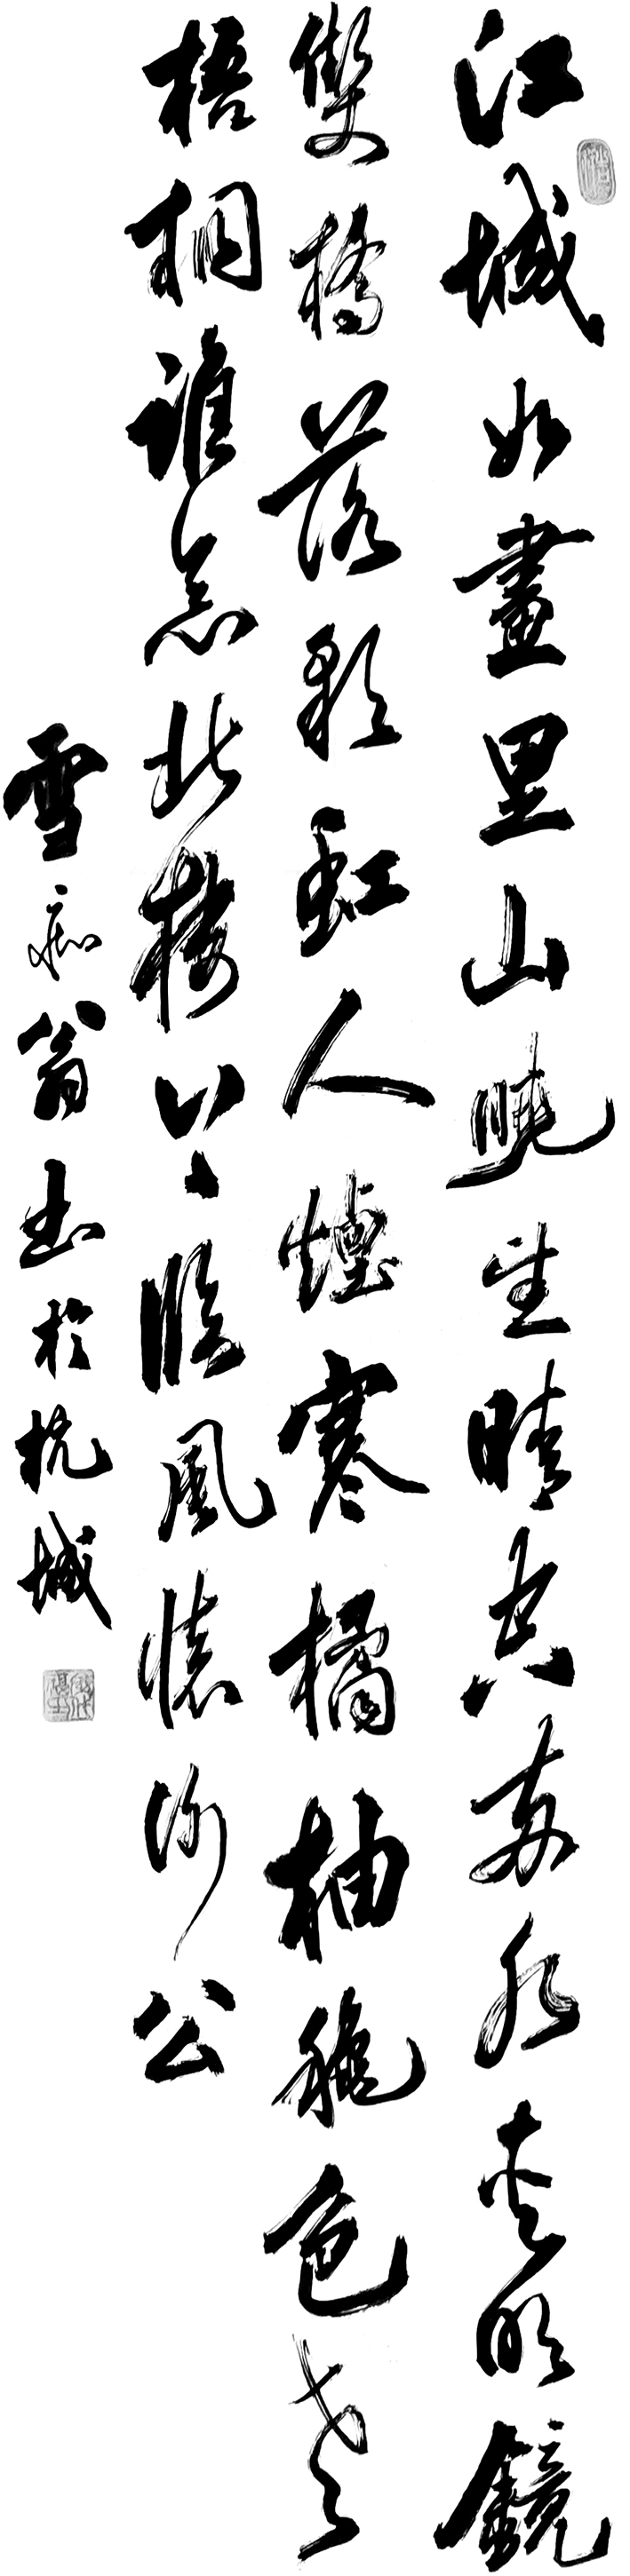 江城如畫里山曉望晴空兩水夾明鏡
雙橋落彩虹人煙寒橘柚穐色老
梧桐誰念北樓上臨風懷謝公
雪翁書於杭城